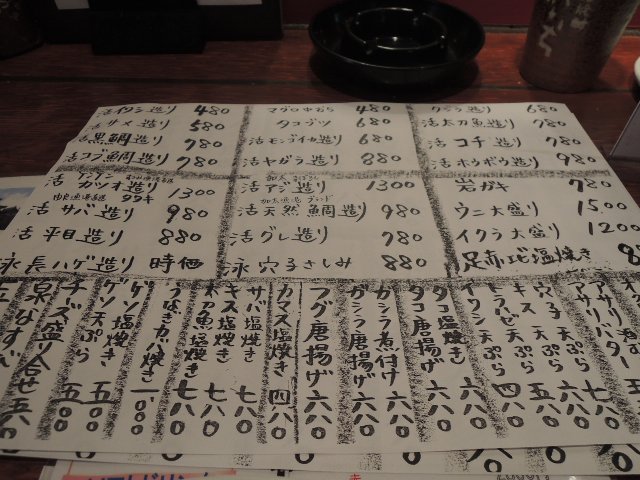 活イワシ造り 480
活サメ造り 580
活黒鯛造り 780
活コブ鯛造り 780
マグロ中おち 480
タコブツ 680
活モンゴイカ造り 680
活ヤガラ造り 880
クジラ造り 680
活太刀魚造り 780
活コチ造り 780
活ホウボウ造り 980
活カツオ造り 1300
タタキ
活サバ造り 980
活平目造り 880
永長ハゲ造り 時価
活アジ造り 1300
活天然鯛造り 980
活グレ造り 980
永穴子さしみ 880
岩ガキ 780
ウニ大盛り 1500
イクラ大盛り 1200
足赤エビ塩焼き
アサリバター
穴子天ぷら 六八〇
キス天ぷら 五八〇
トラハゼ天ぷら 六八〇
イワシ天ぷら 四八〇
タコ塩焼き 六八〇
タコ唐揚げ 六八〇
ガシラ煮付け 六八〇
ガシラ唐揚げ 六八〇
フグ唐揚げ 六八〇
カマス塩焼き 四八〇
サバ塩焼き 七八〇
キス塩焼き 七八〇
太刀魚塩焼き 七八〇
ゲソ塩焼き 五〇〇
ゲソ天ぷら 五〇〇
チーズ盛り合せ 五八〇